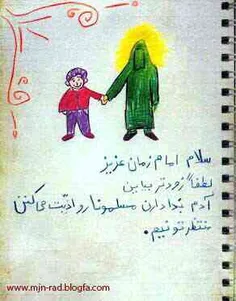 سلام امام زمان عزیز
لطفاً زودتر بیاین
آدم بدا دارن مسلمونا رو اذیّت می کنن
منتظرتونیم.
www.mjn-rad.blogfa.com